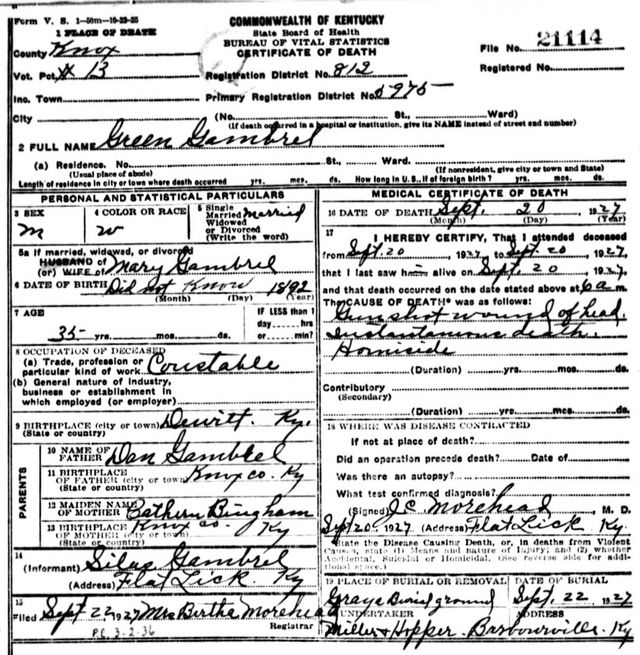 Form V. S. 1-50m-10-23-25
COMMONWEALTH OF KENTUCKY
State Board of Health
BUREAU OF VITAL STATISTICS
CERTIFICATE OF DEATH
1 PLACE OF DEATH
County Knox
File No. 21114
Vot. Pct. # 13
Registration District No. 812
Registered No.
Inc. Town
Primary Registration District No. 5975
City (No. St., Ward)
(If death occurred in a hospital or institution, give its NAME instead of street and number)
2 FULL NAME Green Gambrel
(a) Residence. No. St., Ward.
(Usual place of abode) (If nonresident, give city or town and State)
Length of residence in city or town where death occurred yrs. mos. ds. How long in U.S., if of foreign birth? yrs. mos. ds.
PERSONAL AND STATISTICAL PARTICULARS
3 SEX
M
4 COLOR OR RACE
W
5 Single
Married
Widowed
or Divorced
(Write the word)
Married
5a If married, widowed, or divorced
HUSBAND of
(or) WIFE of Mary Gambrel
6 DATE OF BIRTH Did not Know 1892
(Month) (Day) (Year)
7 AGE
35 yrs. mos. ds.
If LESS than 1
day hrs.
or min.?
8 OCCUPATION OF DECEASED
(a) Trade, profession or
particular kind of work Constable
(b) General nature of industry,
business or establishment in
which employed (or employer)
9 BIRTHPLACE (city or town) Dewitt. Ky.
(State or country)
PARENTS
10 NAME OF
FATHER Dan Gambrel
11 BIRTHPLACE
OF FATHER (city or town) Knox co. Ky
(State or country)
12 MAIDEN NAME
OF MOTHER Cathern Bingham
13 BIRTHPLACE
OF MOTHER (city or town) Knox co. Ky
(State or country)
14
(Informant) Silas Gambrel
(Address) Flat Lick Ky
15
Filed Sept 22 1927 Mrs Bertha Morehead
Registrar
P.C. 3-2-36
MEDICAL CERTIFICATE OF DEATH
16 DATE OF DEATH Sept. 20 1927
(Month) (Day) (Year)
17
I HEREBY CERTIFY, That I attended deceased
from Sept. 20 1927 to Sept. 20 1927,
that I last saw him alive on Sept. 20 1927,
and that death occurred on the date stated above at 6 a m.
The CAUSE OF DEATH* was as follows:
Gun shot wound of head.
Instantanous death.
Homiside
(Duration) yrs. mos. ds.
Contributory
(Secondary)
(Duration) yrs. mos. ds.
18 WHERE WAS DISEASE CONTRACTED
If not at place of death?
Did an operation precede death? Date of
Was there an autopsy?
What test confirmed diagnosis?
(Signed) J C Morehead, M. D.
Sept 20 1927 (Address) Flat Lick Ky.
State the Disease Causing Death, or, in deaths from Violent
Causes, state (1) Means and nature of Injury; and (2) whether
Accidental, Suicidal or Homicidal. (See reverse side for addi-
tional space.)
19 PLACE OF BURIAL OR REMOVAL
Grays Buriel ground
DATE OF BURIAL
Sept. 22 1927
UNDERTAKER
Miller & Hopper.
ADDRESS
Barbourville. Ky